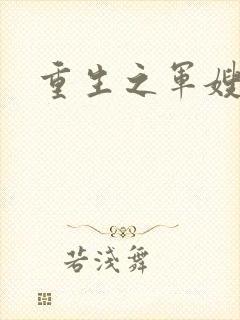 重生之军嫂
若浅舞